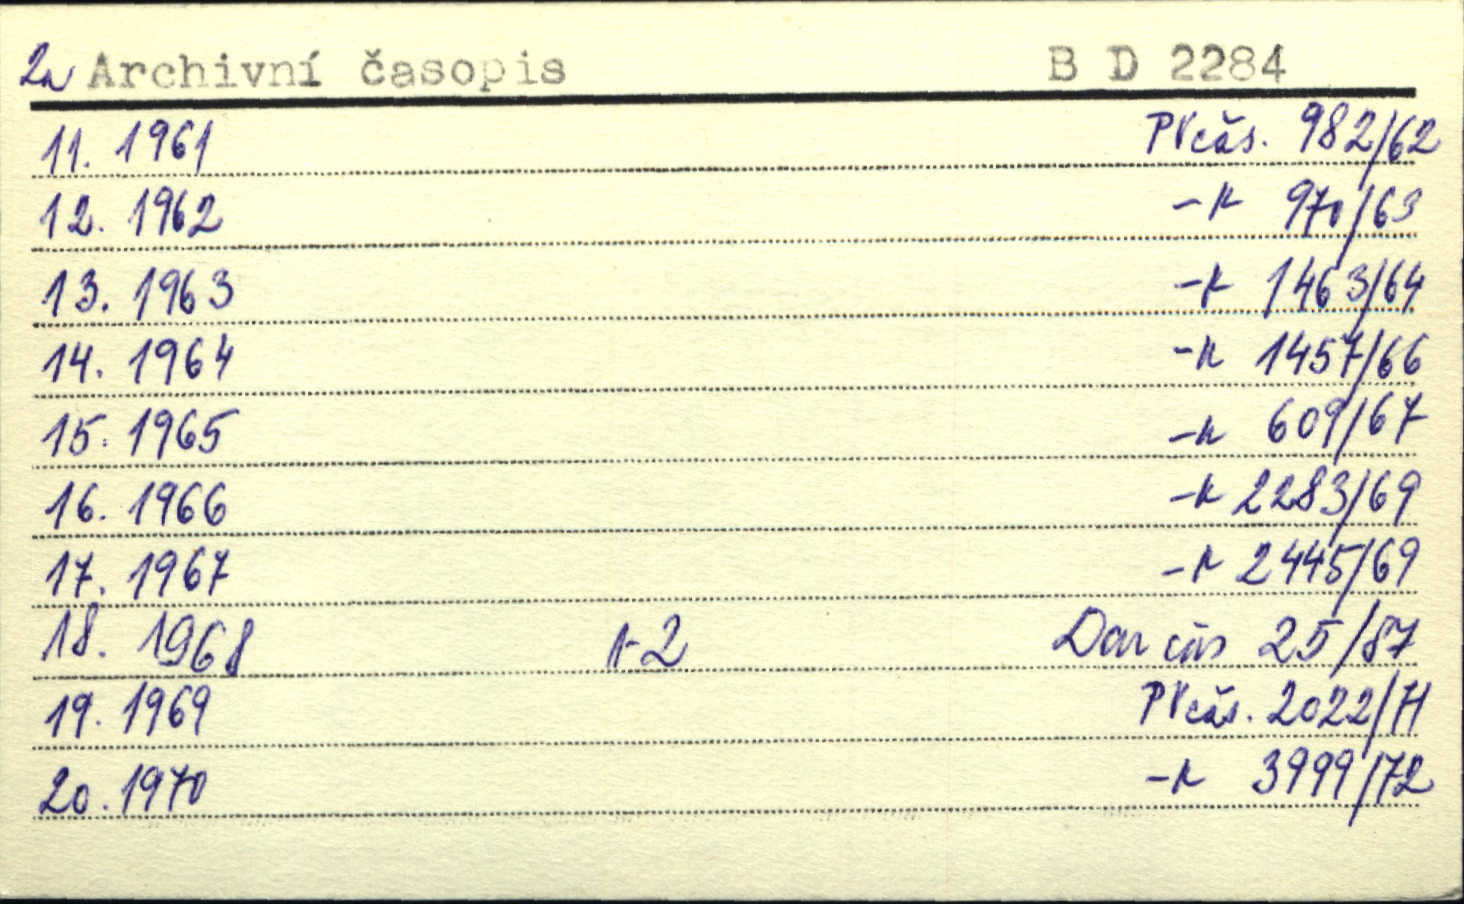 2a Archivní časopis B D 2284
11. 1961 PVčás. 982/62
12. 1962 -"- 970/63
13. 1963 -"- 1463/64
14. 1964 -"- 1457/66
15. 1965 -"- 609/67
16. 1966 -"- 2283/69
17. 1967 -"- 2445/69
18. 1968 1-2 Dar čás 25/87
19. 1969 PVčás. 2022/71
20. 1970 -"- 3999/72